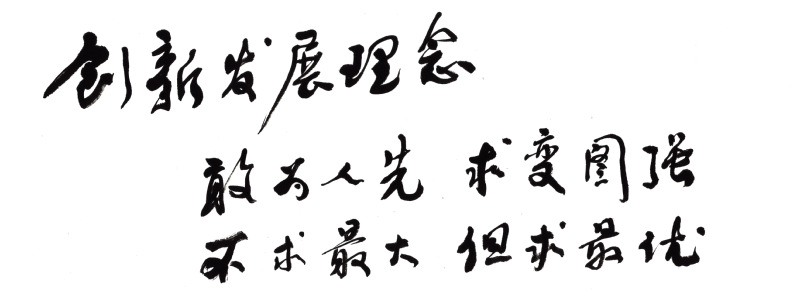 创新发展理念
敢为人先 求变图强
不求最大 但求最优